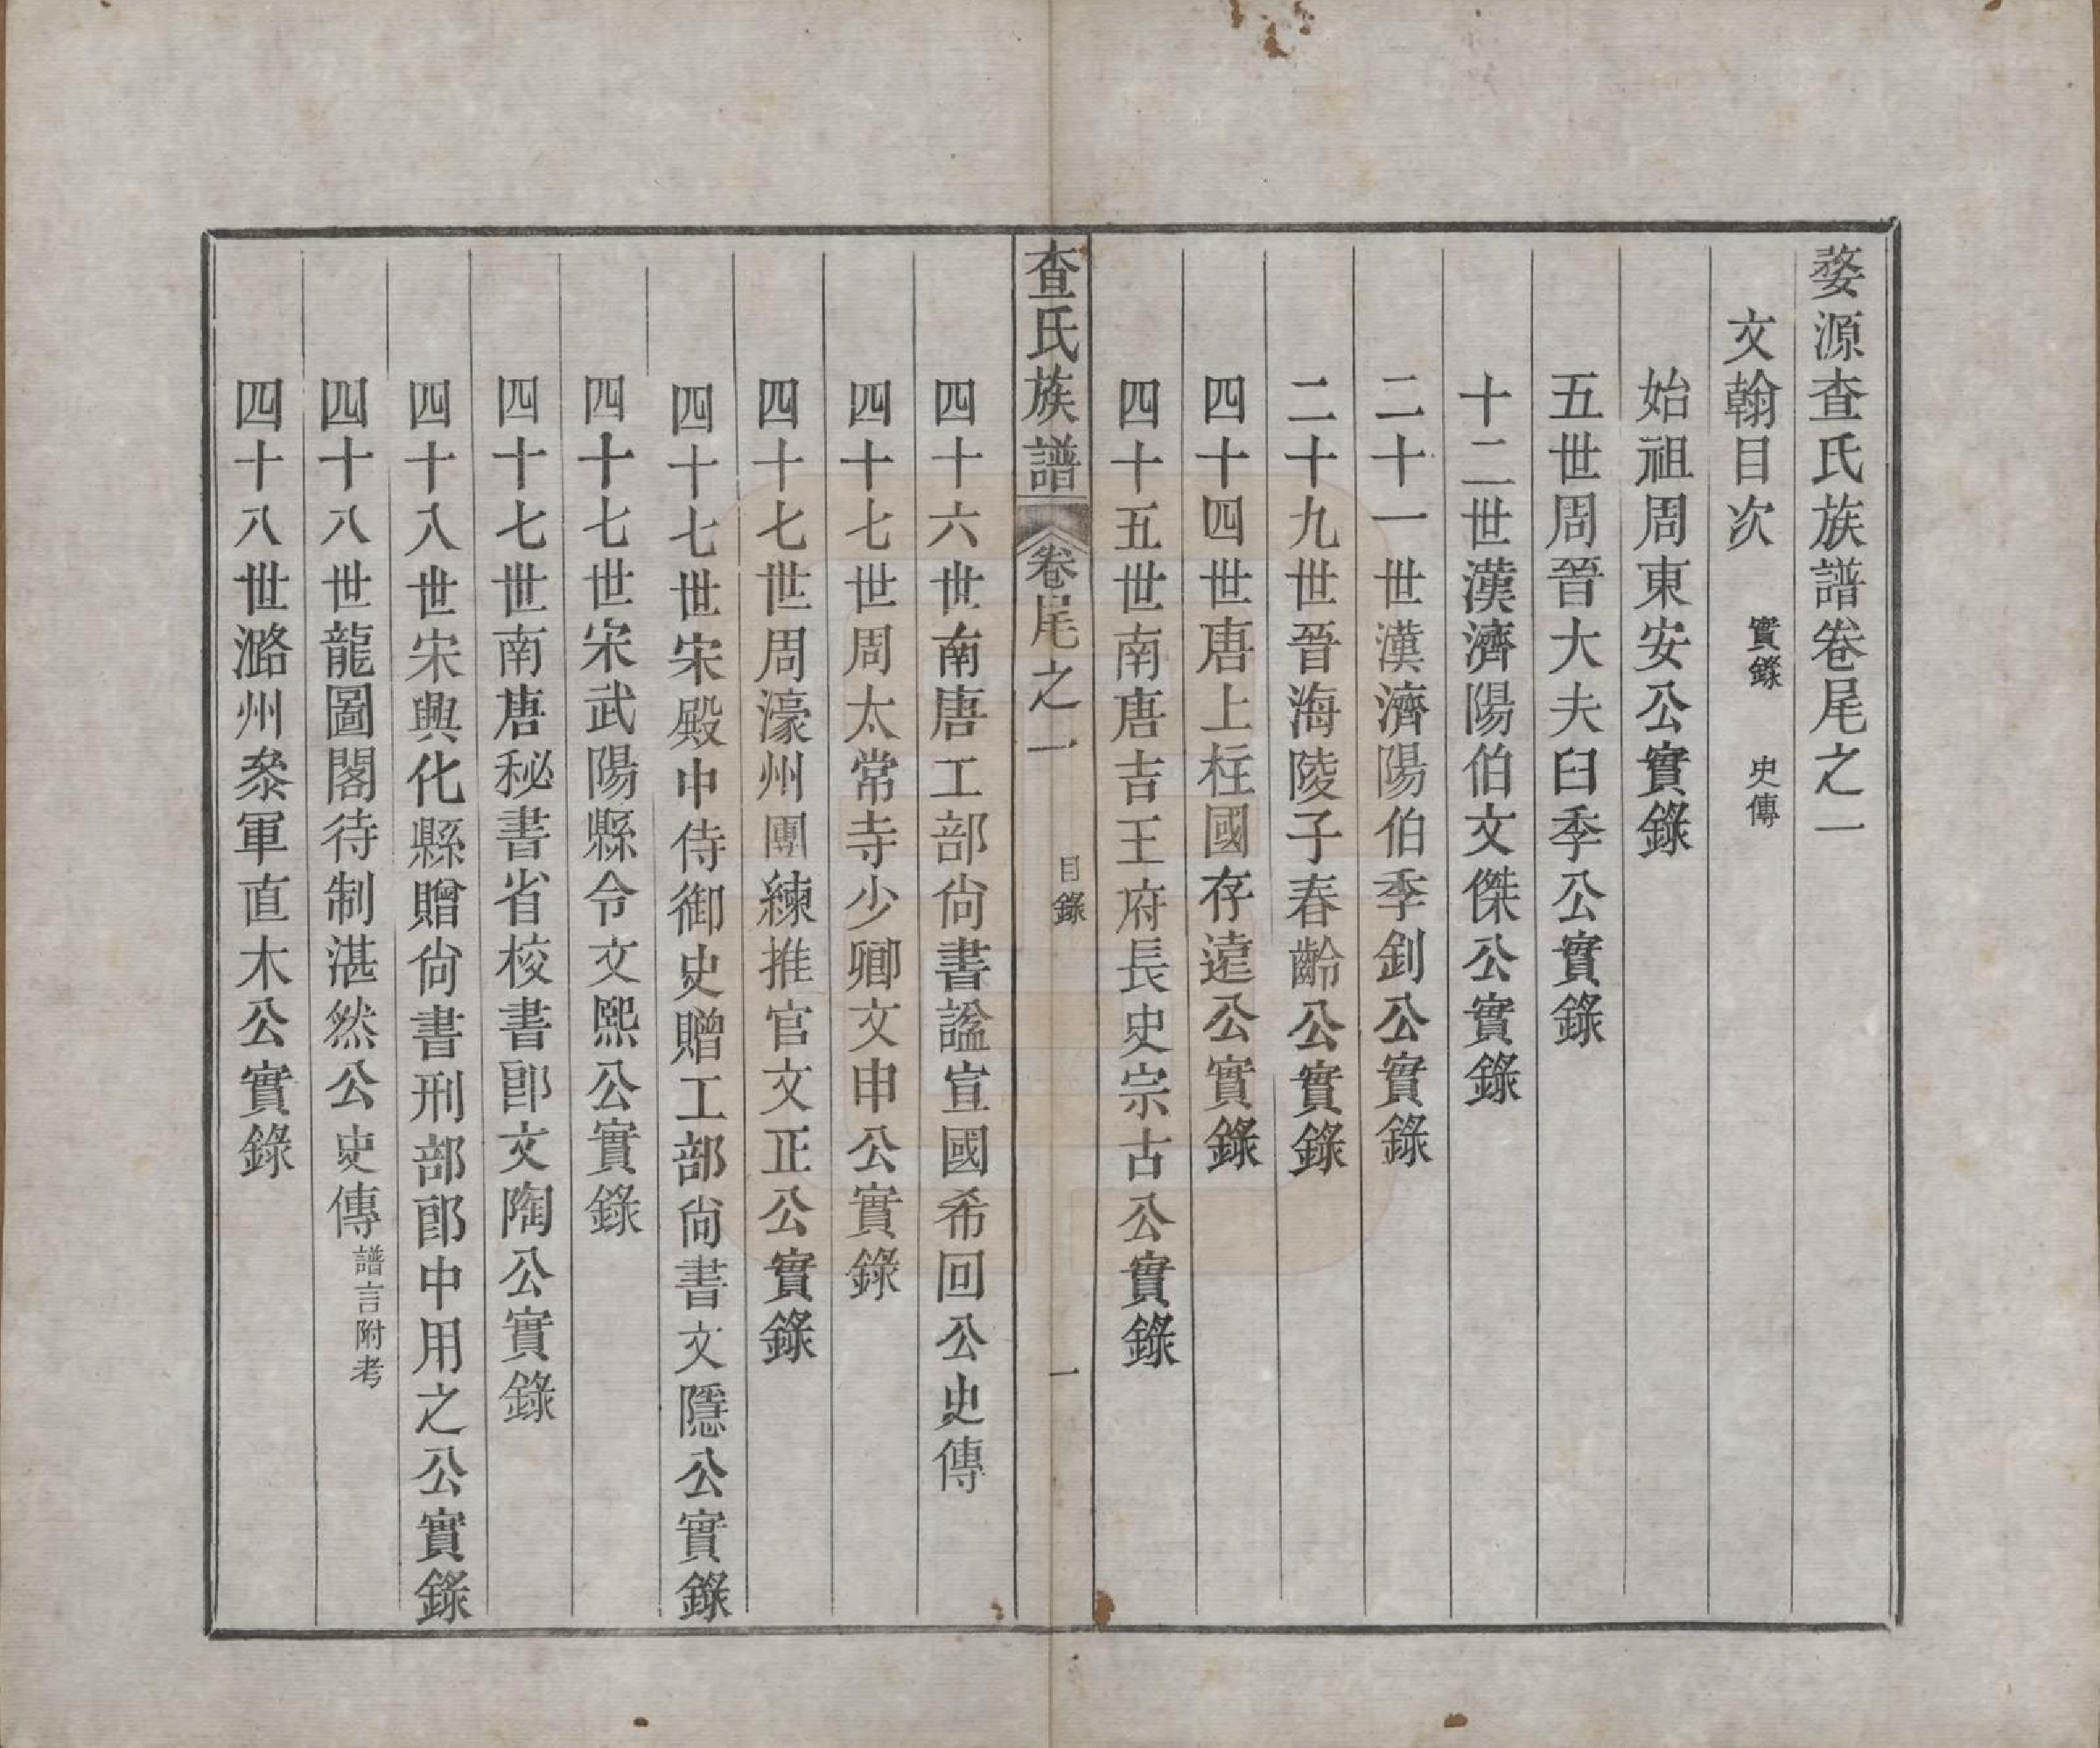 婺源查氏族譜卷尾之一
文翰目次　實錄　史傳
始祖周東安公實錄
五世周晉大夫臼季公實錄
十二世漢濟陽伯文傑公實錄
二十一世漢濟陽伯季釗公實錄
二十九世晉海陵子春齡公實錄
四十四世唐上柱國存遠公實錄
四十五世南唐吉王府長史宗古公實錄
查氏族譜　卷尾之一　目錄　一
四十六世南唐工部尙書謚宣國希回公史傳
四十七世周太常寺少卿文申公實錄
四十七世周濠州團練推官文正公實錄
四十七世宋殿中侍御史贈工部尙書文隱公實錄
四十七世宋武陽縣令文熙公實錄
四十七世南唐秘書省校書郎文陶公實錄
四十八世宋興化縣贈尙書刑部郎中用之公實錄
四十八世龍圖閣待制湛然公史傳譜言附考
四十八世潞州叅軍直木公實錄